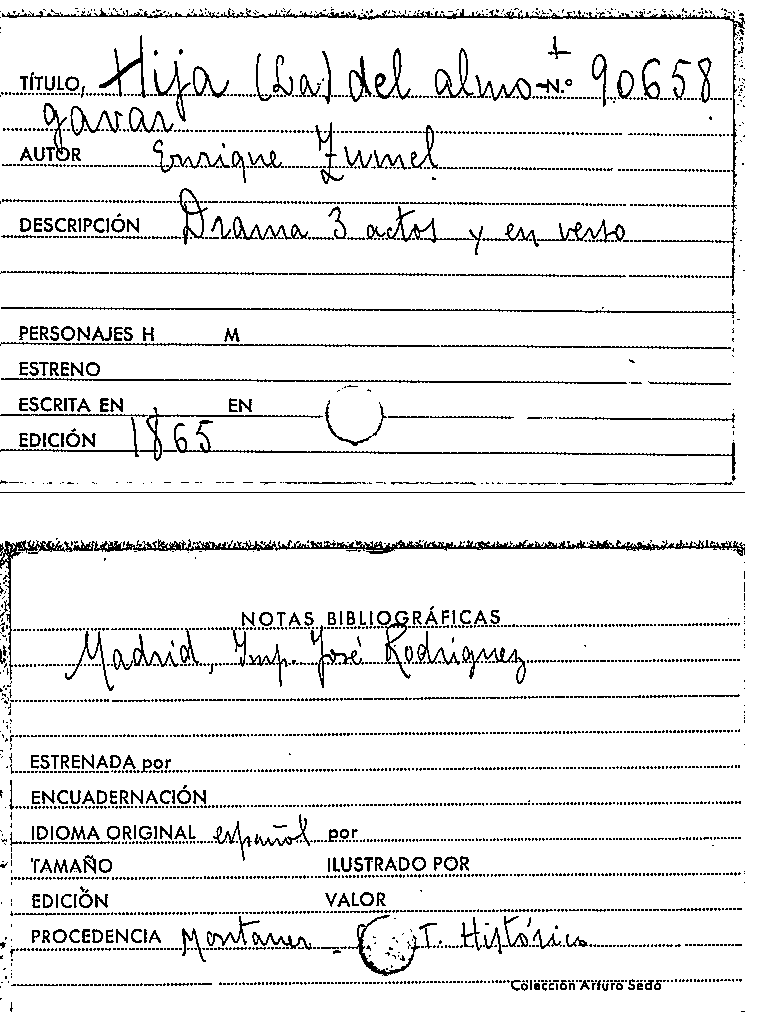 TÍTULO, Hija (La) del almo- N.º 90658
gavar
AUTOR Enrique Zumel
DESCRIPCIÓN Drama 3 actos y en verso
PERSONAJES H M
ESTRENO
ESCRITA EN EN
EDICIÓN 1865
NOTAS BIBLIOGRÁFICAS
Madrid, Imp. José Rodriguez
ESTRENADA por
ENCUADERNACIÓN
IDIOMA ORIGINAL español por
TAMAÑO ILUSTRADO POR
EDICIÓN VALOR
PROCEDENCIA Montaner - T. Histórico
Colección Arturo Sedó